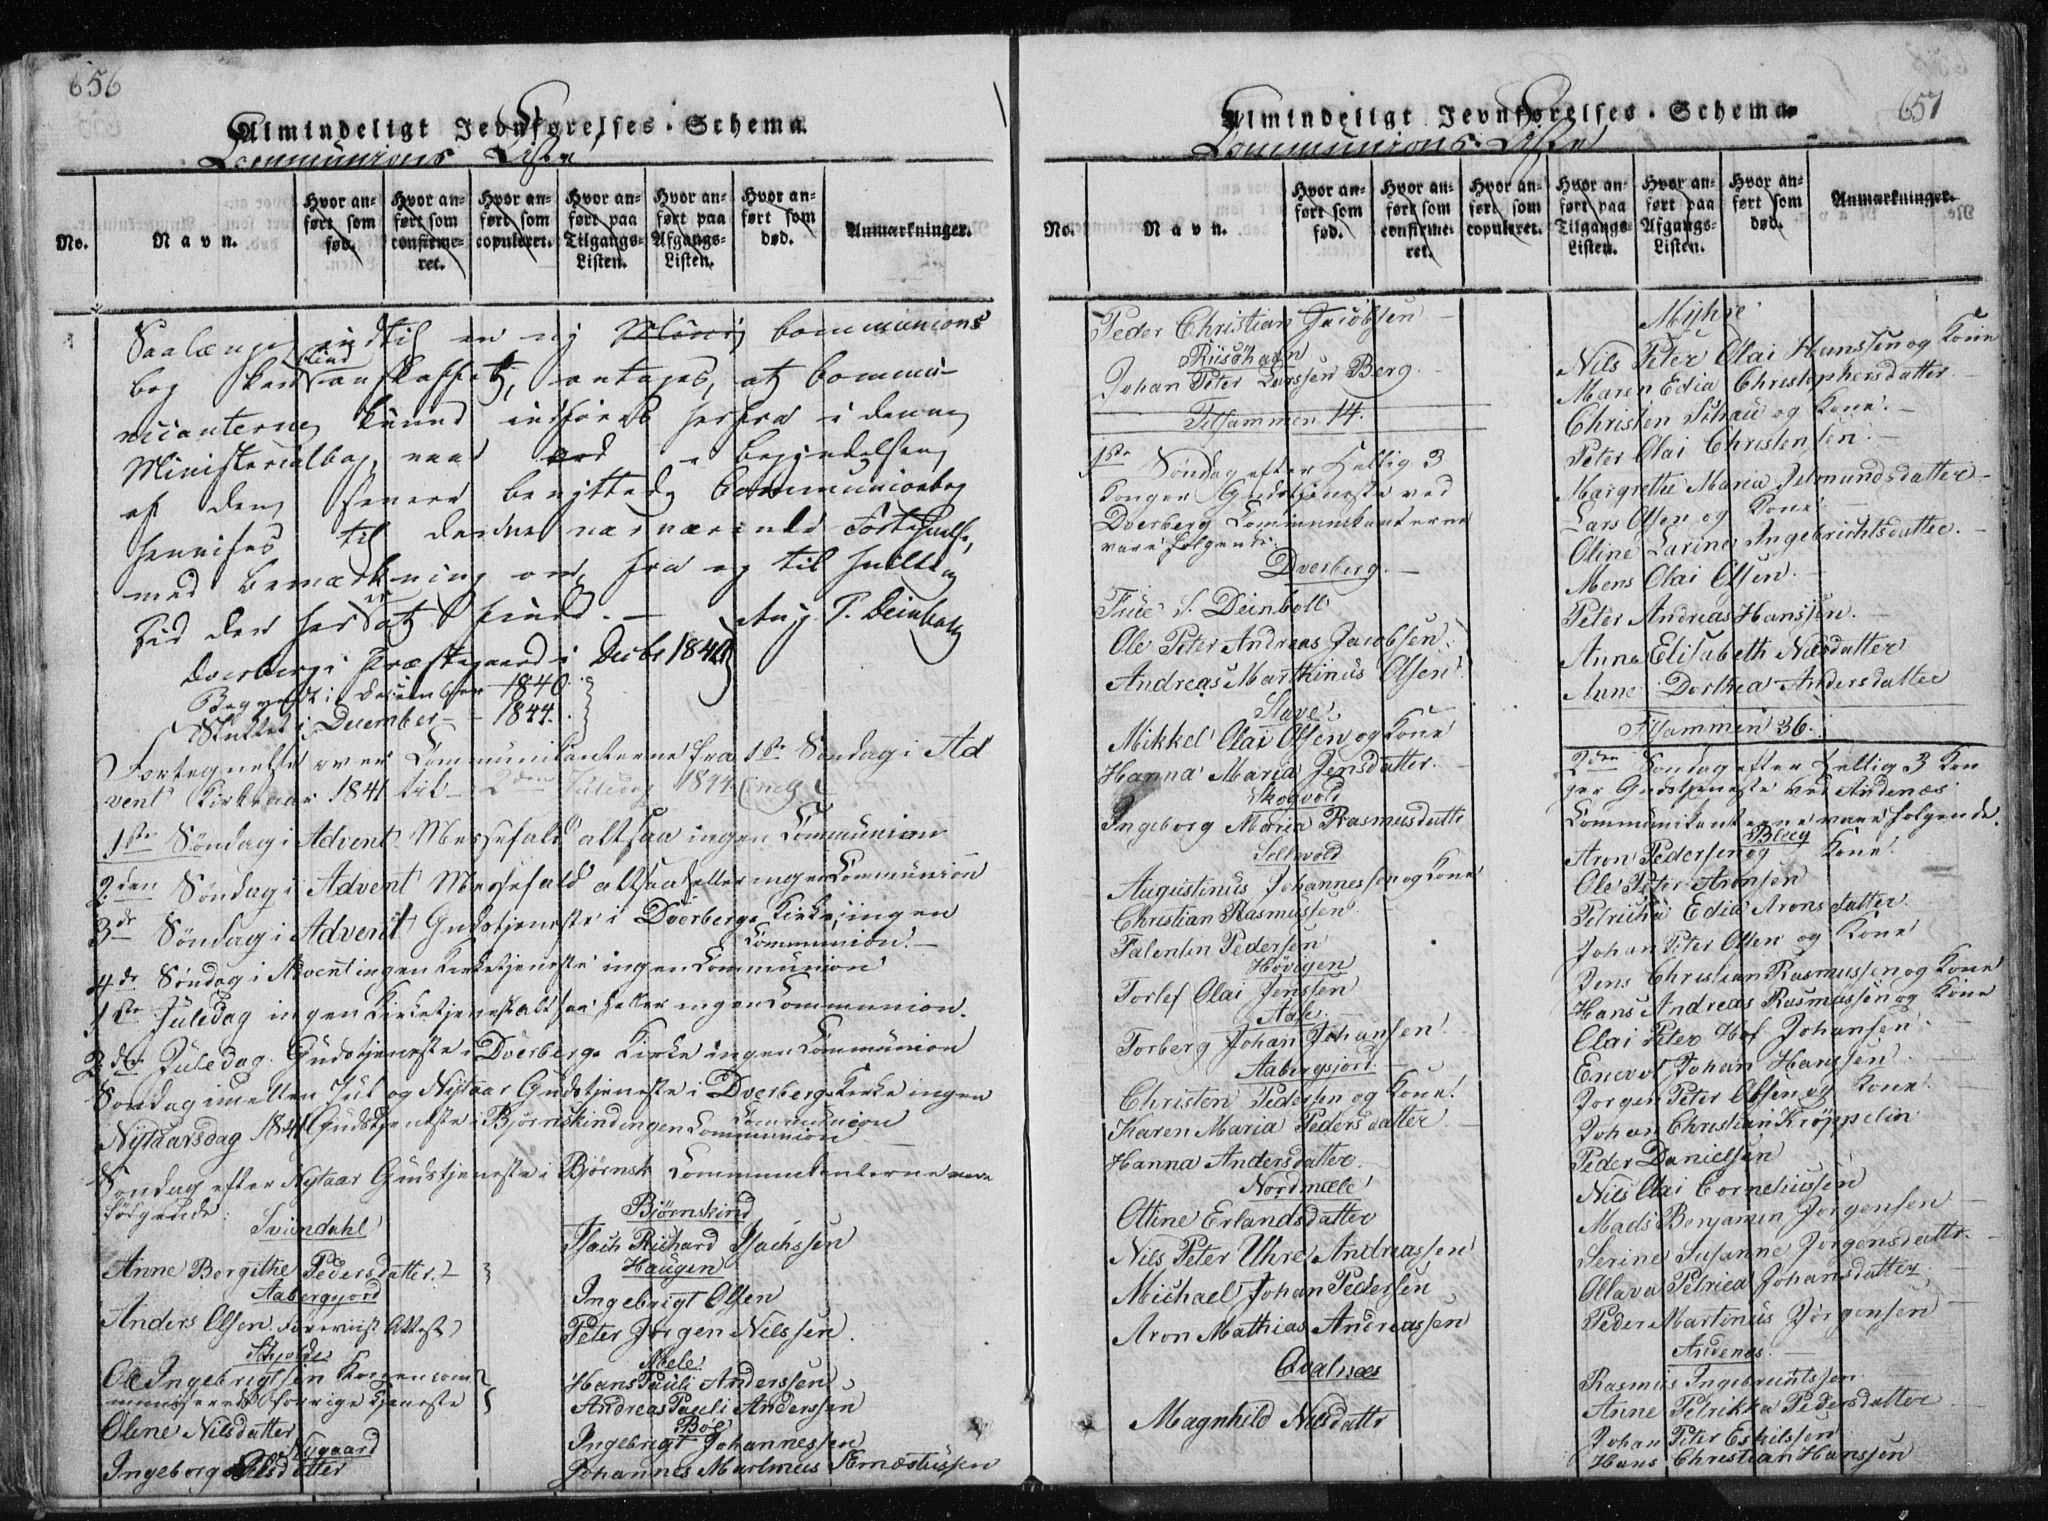 656
Almindeligt Jevnførelses-Schema
Communions Liste
No.
Navn.
Hvor anført som fød.
Hvor anført som confirmeret.
Hvor anført som copuleret.
Hvor anført paa Tilgangs-Listen.
Hvor anført paa Afgangs-Listen.
Hvor anført som død.
Anmærkninger.
Saalænge indtil en ny Communions
bog kan blive anskaffet, antages, at Commu-
nicanterne kunne indføres herfra i denne
Ministerialbog, naar ved Begyndelsen
af den senere benyttede Communionbog
henvises til denne nærværende Fortegnelse,
med Bemærkning om, fra og til hvilken
Tid den her at finde. —
Aug. P. Deinboll
Dverbergs Præstegaard i Decbr 1840
Begyndt i December 1840.
Sluttet i December 1844.
Fortegnelse over Communikanterne fra 1ste Søndag i Ad
vent Kirkeaar 1841 til 2den Juledag 1844
1ste Søndag i Advent Messefald altsaa ingen Communion
2den Søndag i Advent Messefald altsaa heller ingen Communion
3de Søndag i Advent Gudstjeneste i Dverbergs Kirke, ingen
Communion. —
4de Søndag i Advent ingen Kirketjeneste ingen Communion
1ste Juledag ingen Kirketjeneste altsaa heller ingen Communion.
2den Juledag. Gudstjeneste i Dverbergs Kirke ingen Communion
Søndag imellem Jul og Nytaar Gudstjeneste i Dverbergs Kirke ingen
Communion
Nytaarsdag 1841 Gudstjeneste i Bjørnskind ingen Communion
Søndag efter Nytaar Gudstjeneste i Bjørnsk Communikanterne vare
følgende:
Sviendahl
Anne Bergithe Pedersdatter.
Aabergsjord
Anders Olsen forevist Attest
Skjolde
Ole Ingebrigtsen
forrige Tjeneste
Oline Nilsdatter
Nygaard
Ingeborg Nilsdatter
Bjørnskind
Isach Richard Isachssen
Haugen
Ingebrigt Olsen
Peter Jørgen Nilssen.
Mele
Hans Pauli Anderssen
Andreas Pauli Anderssen
Boe
Ingebrigt Johannessen
Johannes Martinus Arnæstussen
657
Almindeligt Jevnførelses-Schema
Communions-Liste
No.
Navn.
Hvor anført som fød.
Hvor anført som confirmeret.
Hvor anført som copuleret.
Hvor anført paa Tilgangs-Listen.
Hvor anført paa Afgangs-Listen.
Hvor anført som død.
Anmærkninger.
Peder Christian Jacobsen
Riisøhavn
Johan Peter Larssen Berg.
Tilsammen 14.
1ste Søndag efter Hellig 3
Konger Gudstjeneste ved
Dverberg Communikanterne
vare følgende.
Dverberg. —
Frue S. Deinboll
Ole Peter Andreas Jacobsen
Andreas Marthinus Olsen
Stave
Mikkel Olai Olsen og Kone
Hanna Maria Jensdatter.
Skogvold
Ingeborg Maria Rasmusdattr
Sellevold
Augustinus Johannessen og Kone
Christian Rasmussen
Falentin Pedersen
Høvigen
Torlef Olai Jenssen
Aase.
Torberg Johan Johansen.
Aabergsjord.
Christen Pedersen og Kone.
Karen Maria Pedersdatter.
Hanna Andersdatter.
Nordmele
Oline Erlandsdatter
Nils Peter Uhre Andreassen
Michael Johan Pedersen
Aron Mathias Andreassen
Qvalnæs
Magnhild Nilsdattr
Myhre
Nils Peter Olai Hanssen og Kone
Maren Edia Christophersdatter
Christen Schau og Kone. —
Peter Olai Christensen. —
Margrethe Maria Zelmundsdatter —
Lars Olsen og Kone
Oline Larina Ingebrichtsdatter. —
Mens Olai Olsen. —
Peter Andreas Hanssen. —
Anne Elisabeth Nilsdatter
Anne Dorthea Andersdatter
Tilsammen 36.
2den Søndag efter Hellig 3 Kon
ger Gudstjeneste ved Andenæs
Communikanterne vare følgende.
Bleeg
Aron Pedersen og Kone
Ole Peter Aronsen
Petricha Edia Aronsdatter.
Johan Peter Olsen og Kone
Jens Christian Rasmussen og Kone
Hans Andreas Rasmussen og Kone
Olai Peter Hof Johansen. —
Enevol Johan Hanssen.
Jørgen Peter Olsen og Kone. —
Johan Christian Krøppelin
Peder Danielsen
Nils Olai Corneliussen
Mads Benjamin Jørgensen —
Serine Susanne Jørgensdattr. —
Ollava Petriea Johansdatter
Peder Martonus Jørgensen
Andenæs. —
Rasmus Ingebrichtssen
Anne Petrikka Pedersdatter
Johan Peter Eskilssen
Hans Christian Hanssen